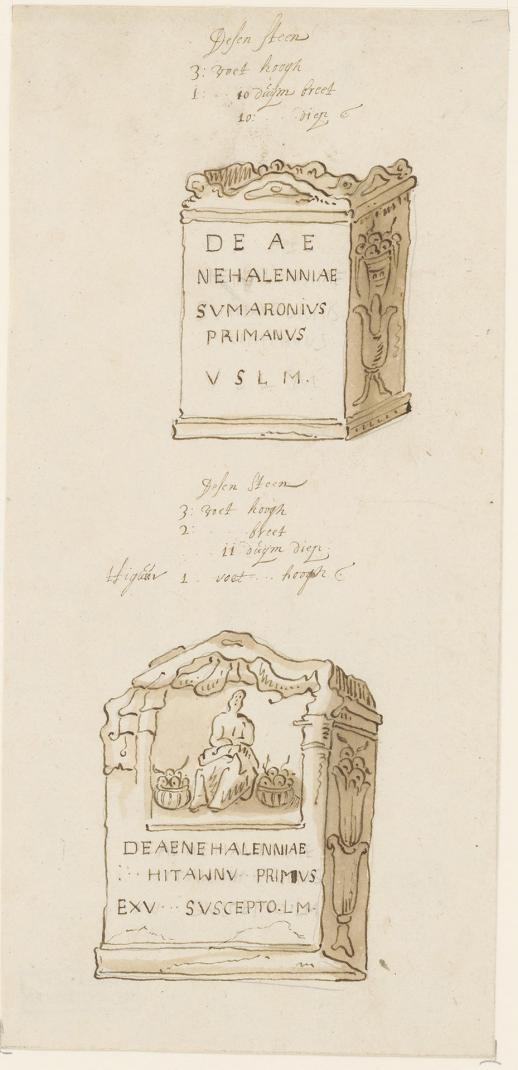 Desen steen
3: voet hoogh
1: .. 10 duijm breet
10: .. diep
DEAE
NEHALENNIAE
SVMARONIVS
PRIMANVS
V S L M.
Desen Steen
3: voet hoogh
2: breet
11 duijm diep:
1 .. voet ... hoogh
DEAENEHALENNIAE
HITAWNV·· PRIMVS
EXV··· SVSCEPTO.L.M.